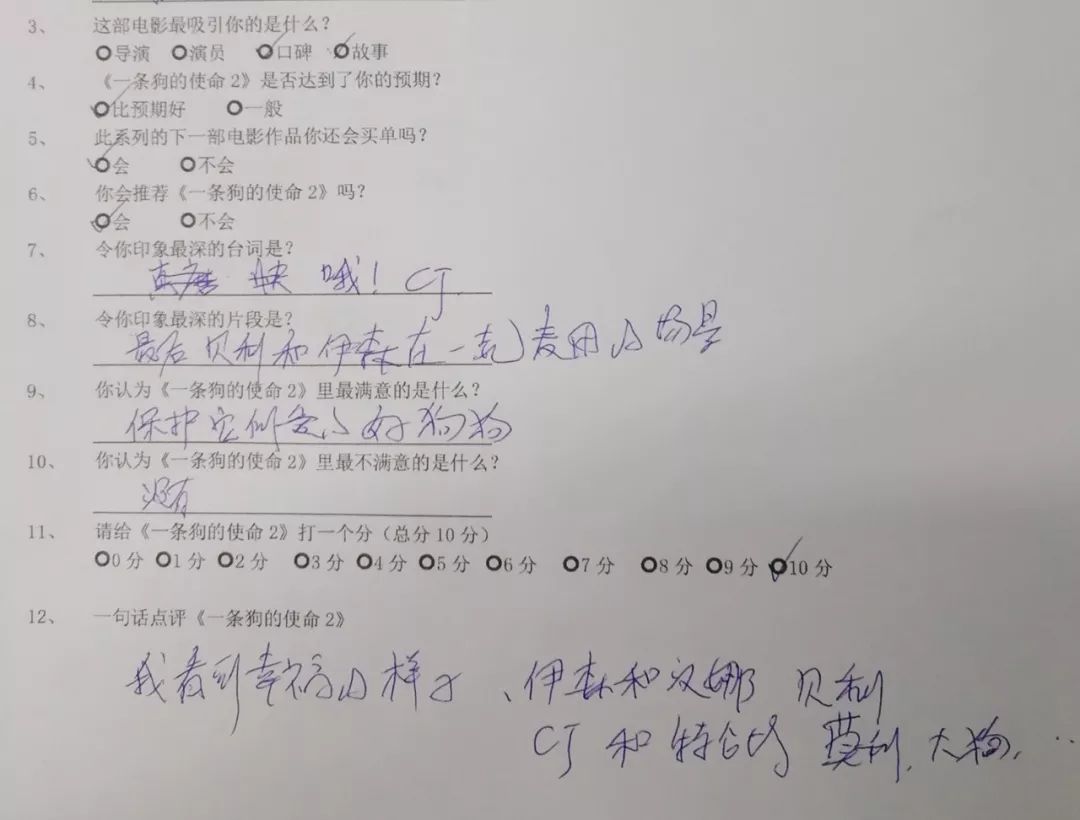 3、 这部电影最吸引你的是什么？
导演 演员 口碑 故事
4、 《一条狗的使命 2》是否达到了你的预期？
比预期好 一般
5、 此系列的下一部电影作品你还会买单吗？
会 不会
6、 你会推荐《一条狗的使命 2》吗？
会 不会
7、 令你印象最深的台词是？
快 哦！CJ
8、 令你印象最深的片段是？
最后贝利和伊森在一起麦田的场景
9、 你认为《一条狗的使命 2》里最满意的是什么？
保护它们的好狗狗
10、 你认为《一条狗的使命 2》里最不满意的是什么？
没有
11、 请给《一条狗的使命 2》打一个分（总分 10 分）
0 分 1 分 2 分 3 分 4 分 5 分 6 分 7 分 8 分 9 分 10 分
12、 一句话点评《一条狗的使命 2》
我看到幸福的样子、伊森和汉娜 贝利
CJ 和 特 莫利、大狗...